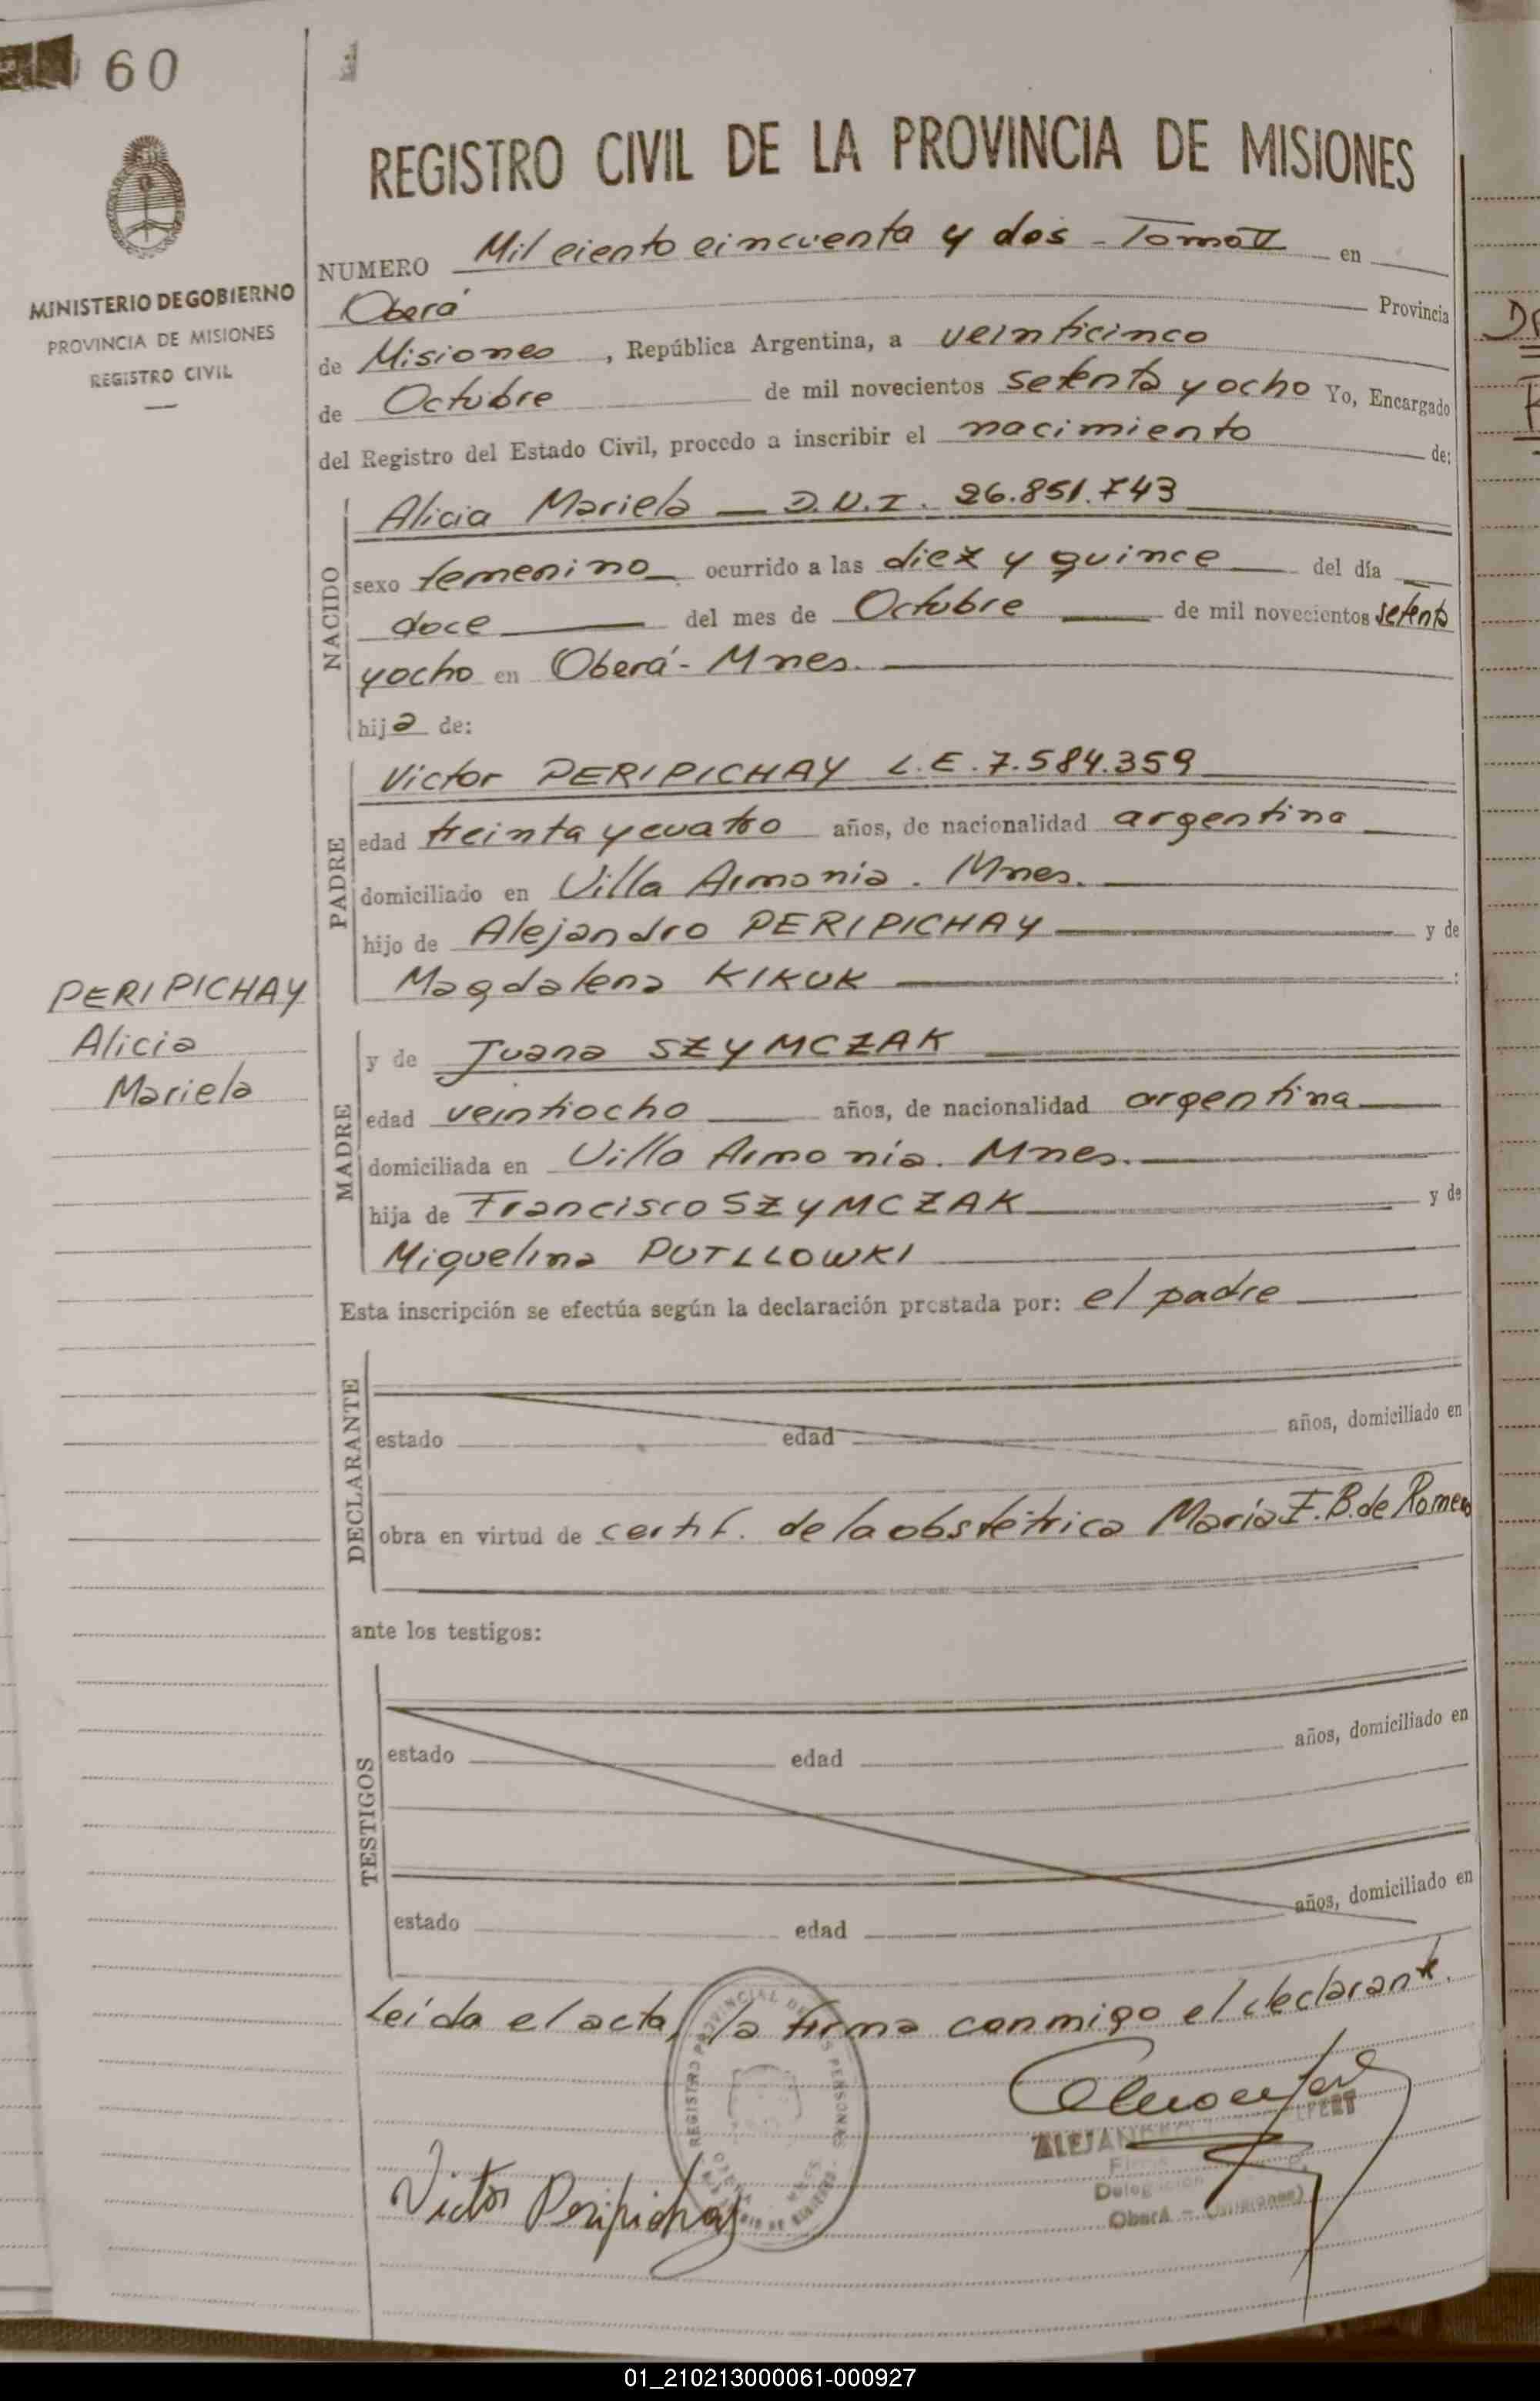 60
MINISTERIO DE GOBIERNO
PROVINCIA DE MISIONES
REGISTRO CIVIL
REGISTRO CIVIL DE LA PROVINCIA DE MISIONES
NUMERO Mil ciento cincuenta y dos - Tomo II en
Oberá Provincia
de Misiones, República Argentina, a veinticinco
de Octubre de mil novecientos setenta y ocho Yo, Encargado
del Registro del Estado Civil, procedo a inscribir el nacimiento de:
NACIDO
Alicia Mariela — D.N.I. 26.851.743
sexo femenino ocurrido a las diez y quince del día
doce del mes de Octubre de mil novecientos setenta
y ocho en Oberá - Mnes.
hija de:
PADRE
Victor PERIPICHAY L.E. 7.584.359
edad treinta y cuatro años, de nacionalidad argentina
domiciliado en Villa Armonia. Mnes.
hijo de Alejandro PERIPICHAY y de
Magdalena KIKUK :
PERIPICHAY
Alicia
Mariela
MADRE
y de Juana SZYMCZAK
edad veintiocho años, de nacionalidad argentina
domiciliada en Villa Armonia. Mnes.
hija de Francisco SZYMCZAK y de
Miguelina PUTLLOWKI
Esta inscripción se efectúa según la declaración prestada por: el padre
DECLARANTE
estado edad años, domiciliado en
obra en virtud de certif. de la obstétrica María I. B. de Romero
ante los testigos:
TESTIGOS
estado edad años, domiciliado en
estado edad años, domiciliado en
Leída el acta, la firma conmigo el declarante.
REGISTRO PROVINCIAL DE LAS PERSONAS
Victor Peripichay
Oberá - (Misiones)
01_210213000061-000927